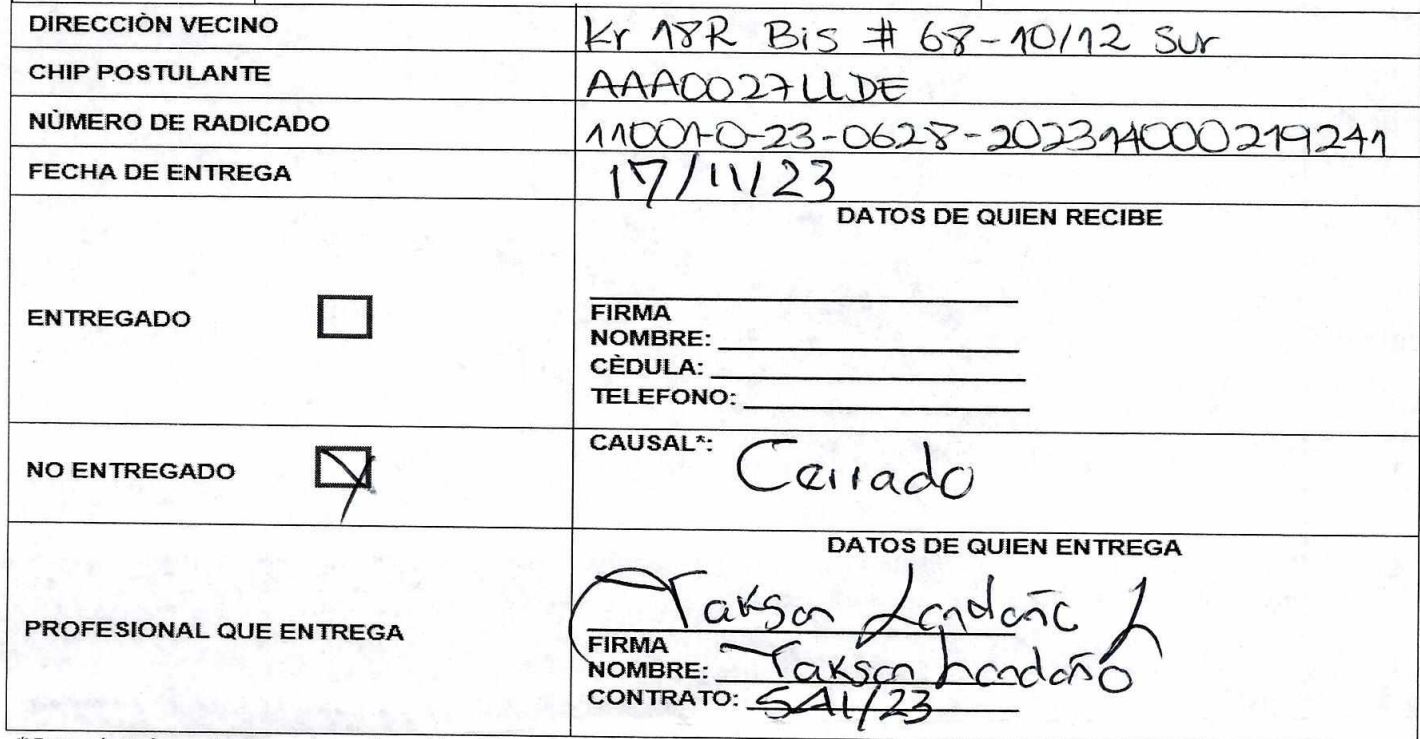 DIRECCIÒN VECINO Kr 18R Bis # 68-10/12 Sur
CHIP POSTULANTE AAA0027LLDE
NÙMERO DE RADICADO 11001-0-23-0628-202314000219241
FECHA DE ENTREGA 17/11/23
DATOS DE QUIEN RECIBE
ENTREGADO
FIRMA
NOMBRE:
CÈDULA:
TELEFONO:
NO ENTREGADO
CAUSAL*: Cerrado
DATOS DE QUIEN ENTREGA
PROFESIONAL QUE ENTREGA
Jakson Londoño L
FIRMA
NOMBRE: Jakson Londoño
CONTRATO: 541/23